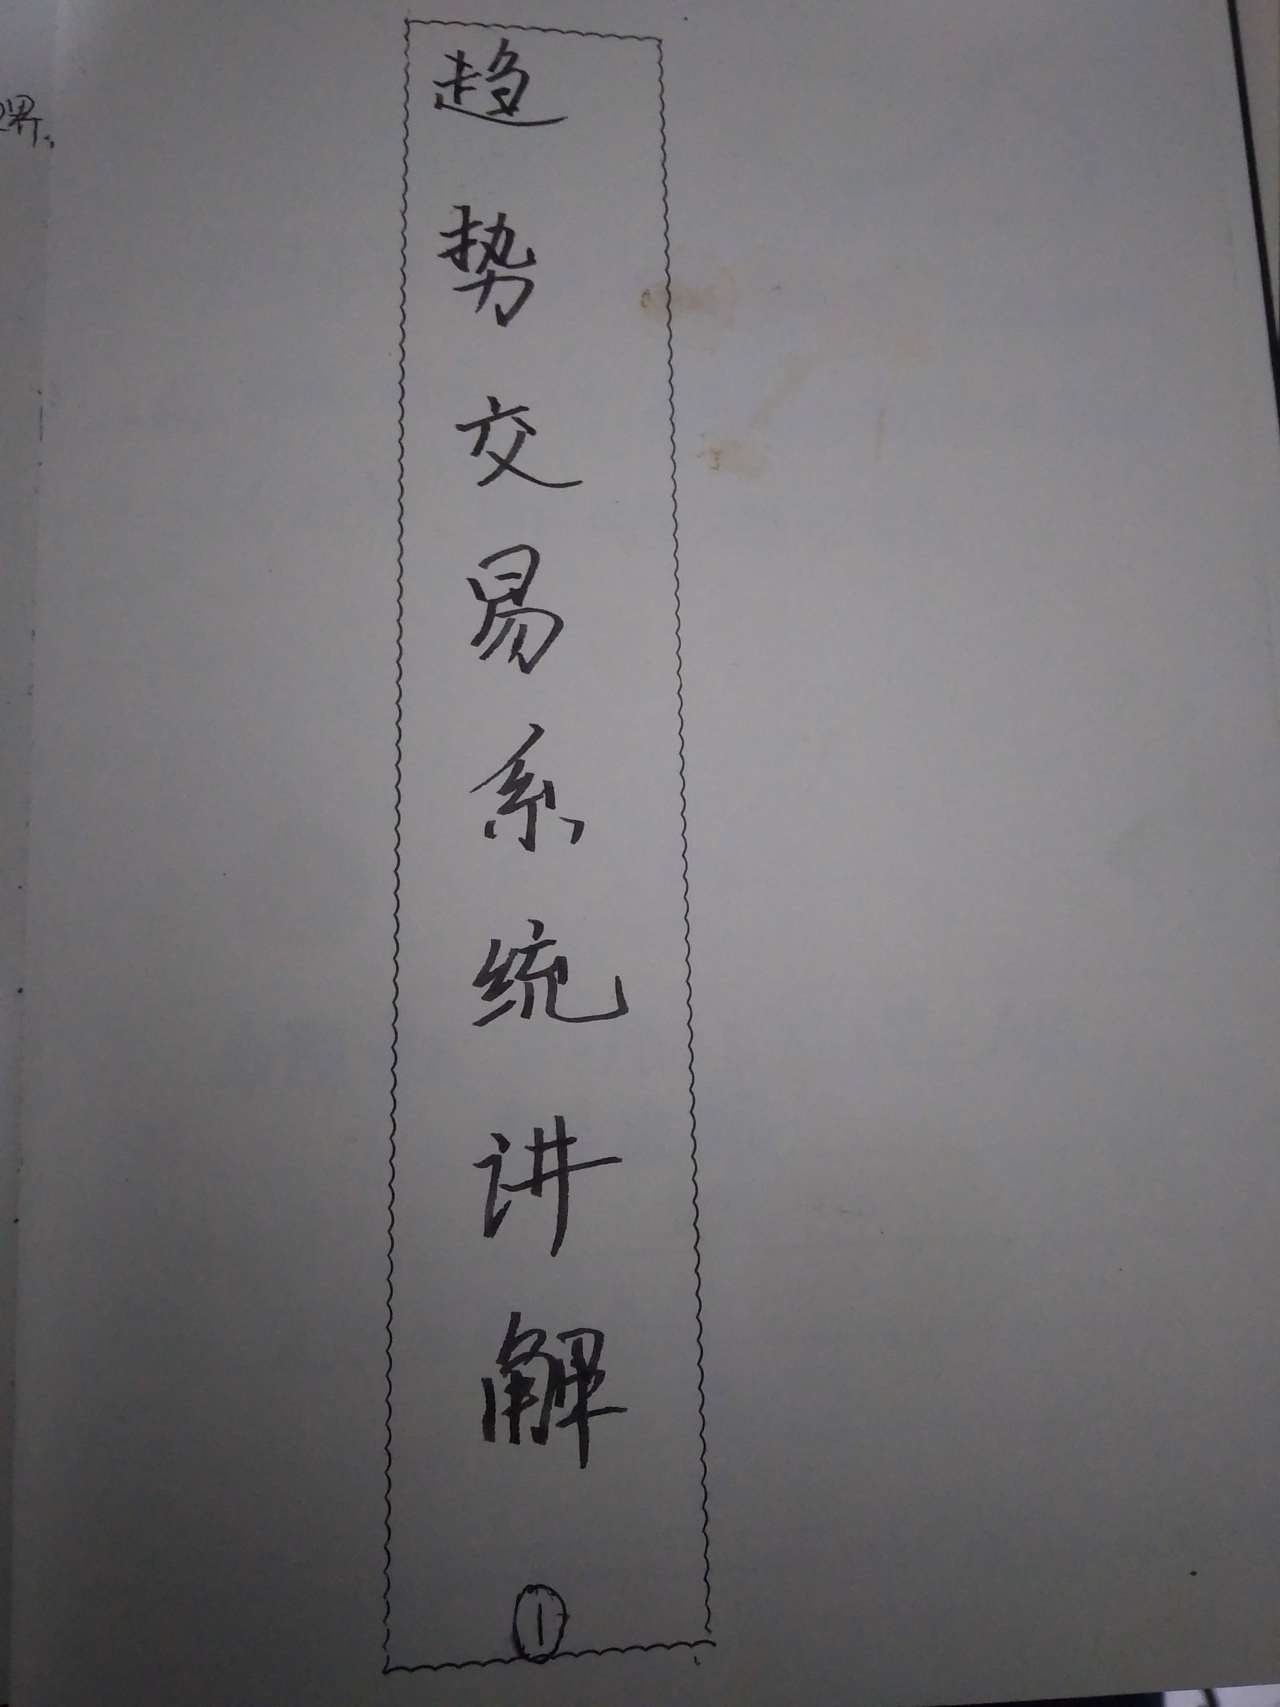 趋势交易系统讲解
①